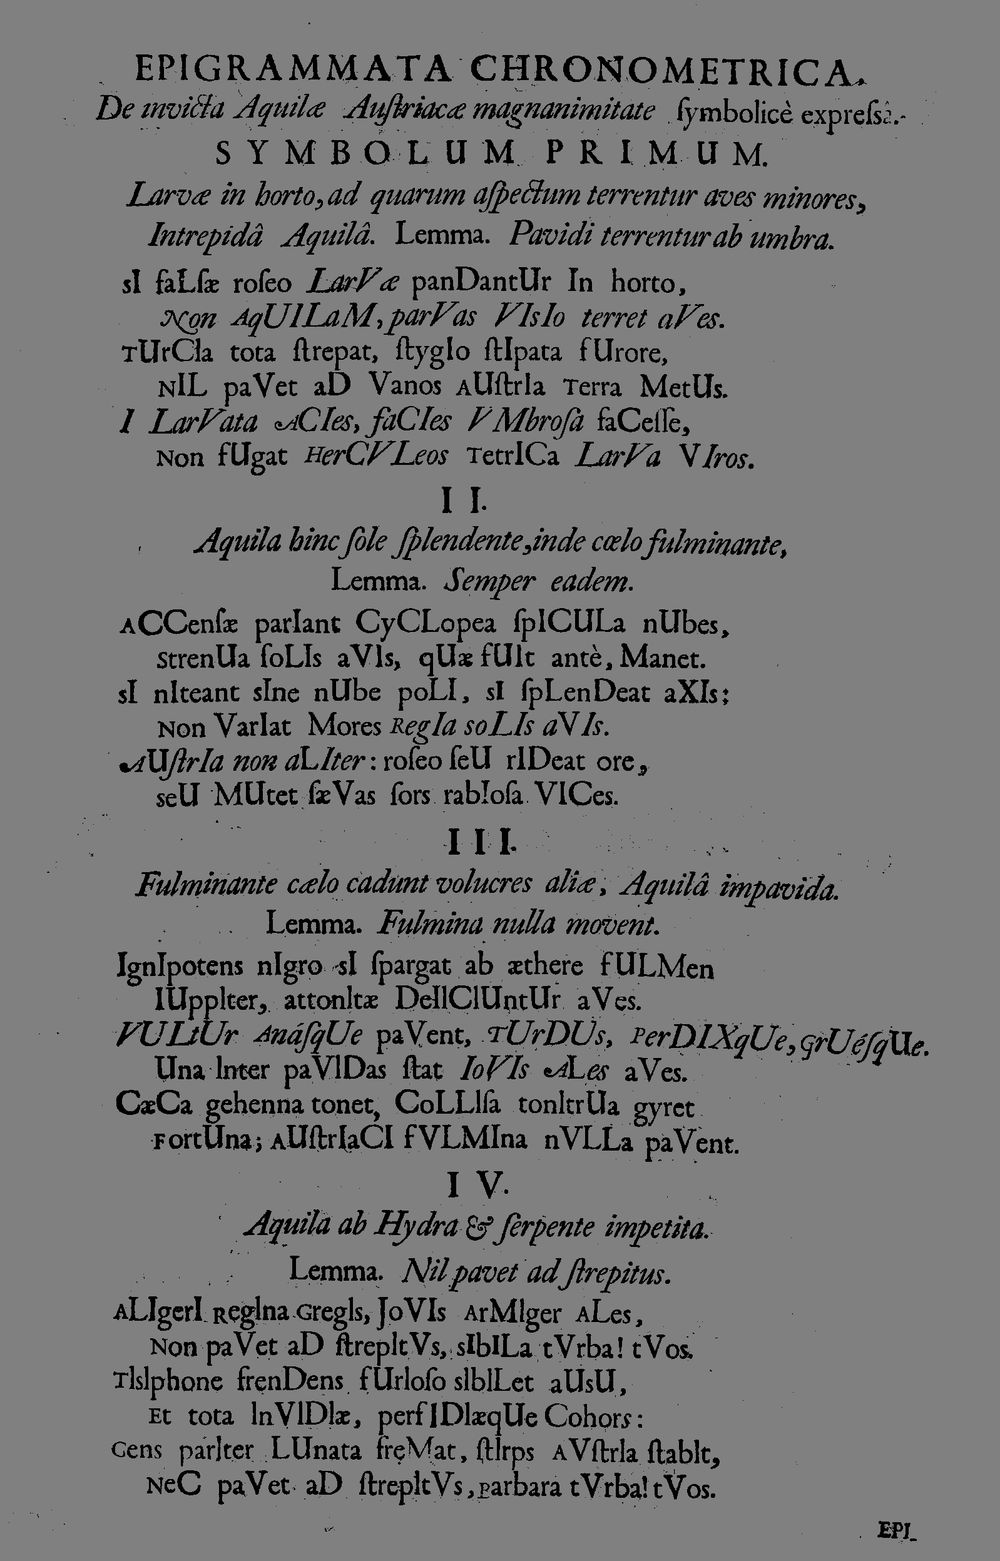 EPIGRAMMATA CHRONOMETRICA.
De invicta Aquilæ Auſtriacæ magnanimitate ſymbolicè expreſsâ.
SYMBOLUM PRIMUM.
Larvæ in horto, ad quarum aſpectum terrentur aves minores,
Intrepidâ Aquilâ. Lemma. Pavidi terrentur ab umbra.
sI faLſæ roſeo LarVæ panDantUr In horto,
Non AqUILaM, parVas VIsIo terret aVes.
TUrCIa tota ſtrepat, ſtygIo ſtIpata fUrore,
NIL paVet aD Vanos AUſtrIa Terra MetUs.
I LarVata ACIes, faCIes VMbroſa faCeſſe,
Non fUgat HerCVLeos TetrICa LarVa VIros.
II.
Aquila hinc ſole ſplendente, inde cœlo fulminante,
Lemma. Semper eadem.
ACCenſæ parIant CyCLopea ſpICULa nUbes,
StrenUa ſoLIs aVIs, qUæ fUIt antè, Manet.
sI nIteant sIne nUbe poLI, sI ſpLenDeat aXIs;
Non VarIat Mores RegIa soLIs aVIs.
AUſtrIa non aLIter: roſeo ſeU rIDeat ore,
seU MUtet ſæVas ſors rabIoſa VICes.
III.
Fulminante cælo cadunt volucres aliæ, Aquilâ impavida.
Lemma. Fulmina nulla movent.
IgnIpotens nIgro sI ſpargat ab æthere fULMen
IUppIter, attonItæ DeIICIUntUr aVes.
VULtUr AnáſqUe paVent, TUrDUs, PerDIXqUe, grUéſqUe.
Una Inter paVIDas ſtat IoVIs ALes aVes.
CæCa gehenna tonet, CoLLIſa tonItrUa gyret
FortUna; AUſtrIaCI fVLMIna nVLLa paVent.
IV.
Aquila ab Hydra & ſerpente impetita.
Lemma. Nil pavet ad ſtrepitus.
ALIgerI RegIna GregIs, JoVIs ArMIger ALes,
Non paVet aD ſtrepItVs, sIbILa tVrba! tVos.
TIsIphone frenDens fUrIoſo sIbILet aUsU,
Et tota InVIDIæ, perfIDIæqUe Cohors:
Gens parIter LUnata freMat, ſtIrps AVſtrIa ſtabIt,
NeC paVet aD ſtrepItVs, barbara tVrba! tVos.
EPI-